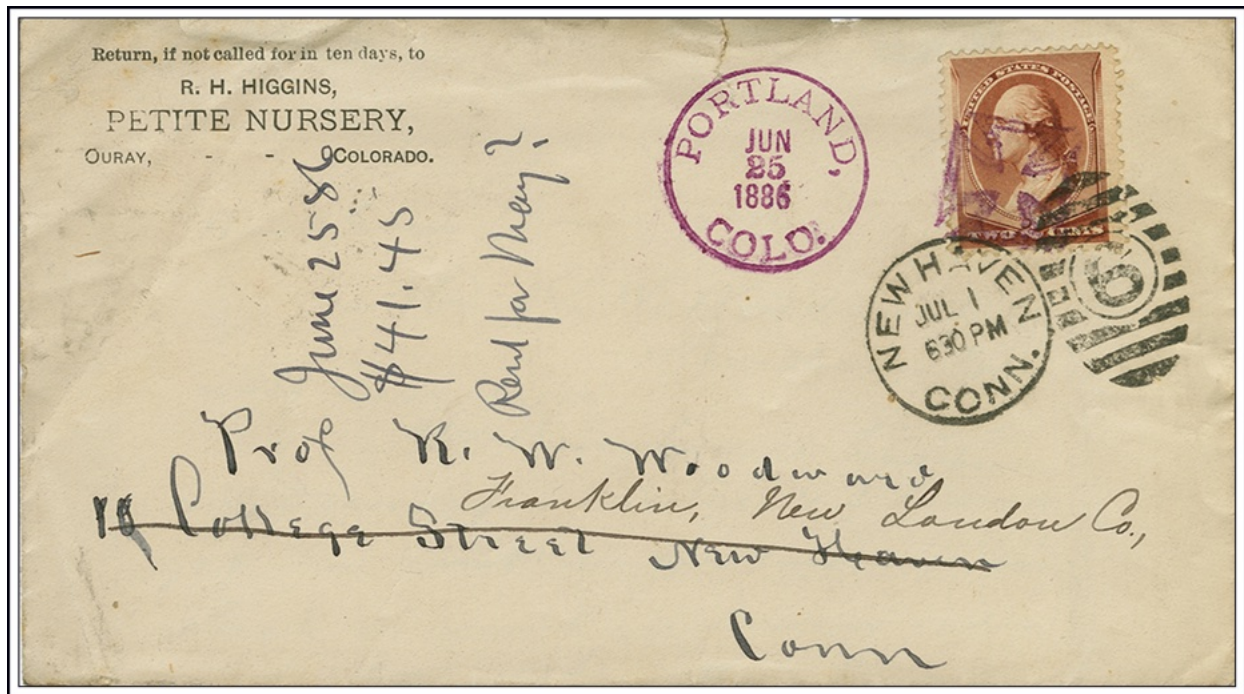 Return, if not called for in ten days, to
R. H. HIGGINS,
PETITE NURSERY,
OURAY, - - COLORADO.
PORTLAND,
JUN
25
1886
COLO.
UNITED STATES POSTAGE
TWO CENTS
NEW HAVEN
JUL 1
630 PM
CONN.
6
June 25 86
$41.45
Rent for May?
Prof R. W. Woodward
Franklin, New London Co.,
College Street New Haven
Conn